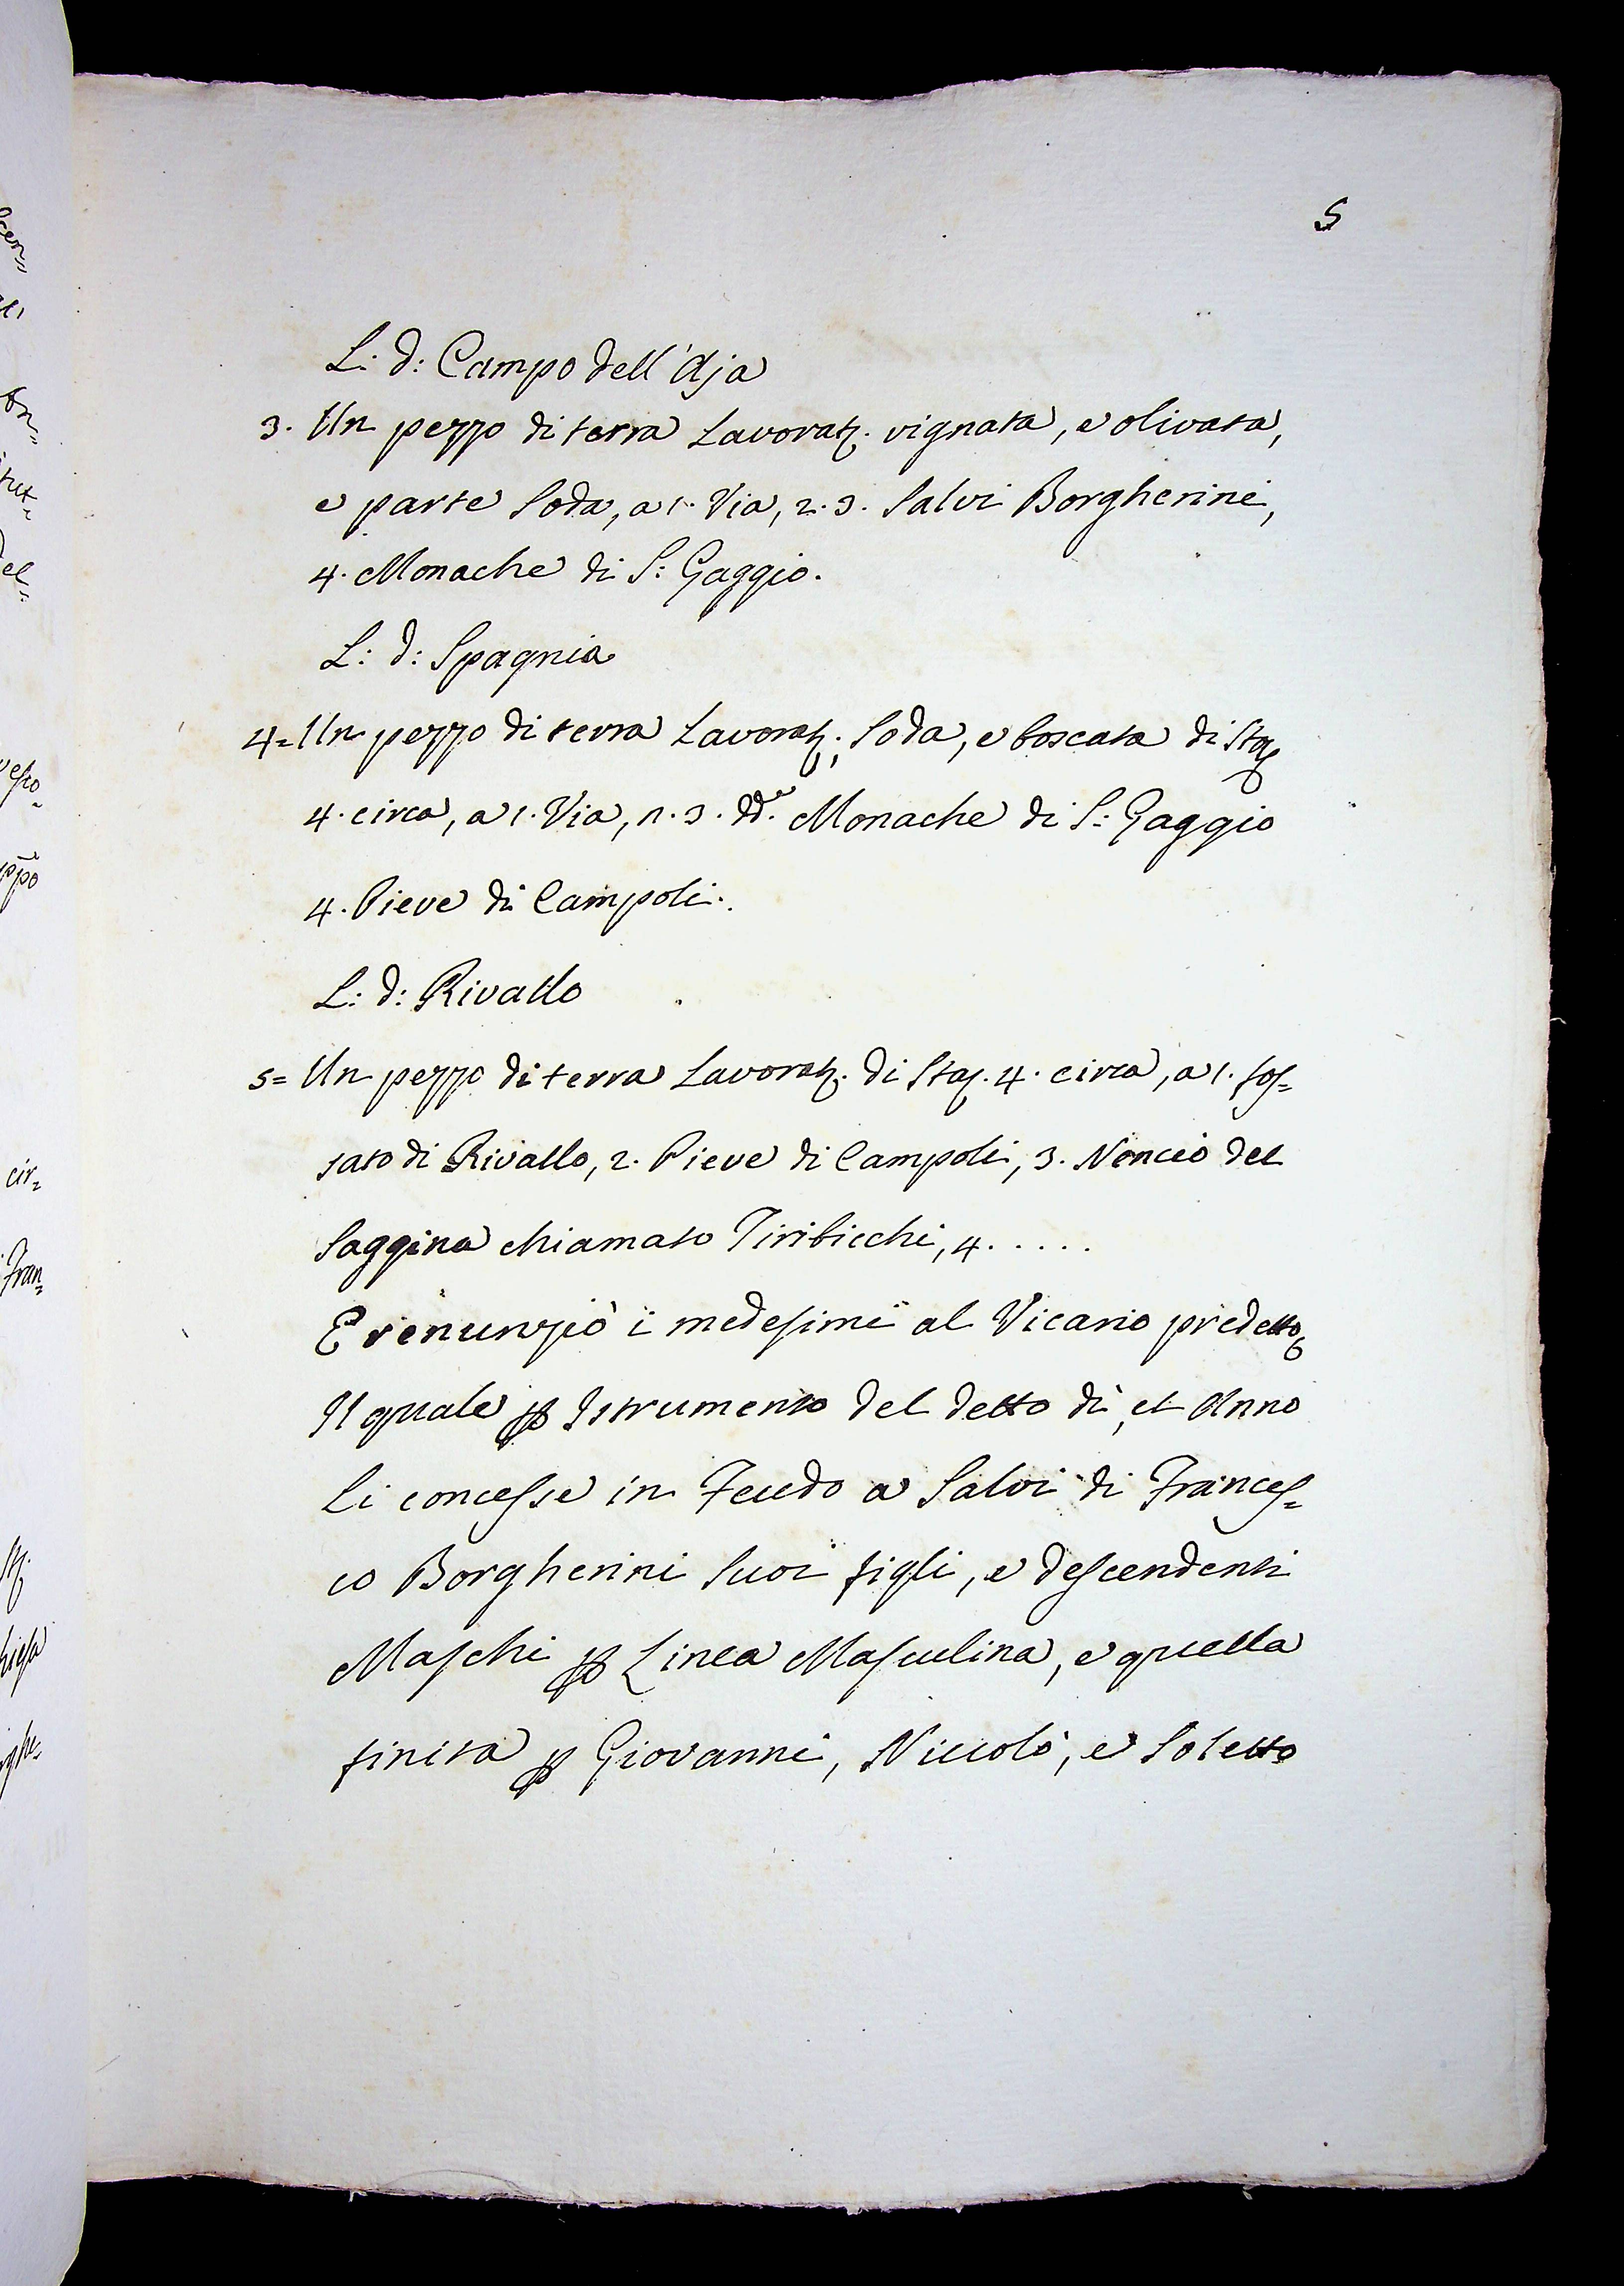 5
L: d: Campo dell'Aja
3. Un pezzo di terra Lavoratz. vignata, e olivata,
e parte Soda, a 1. Via, 2. 3. Salvi Borgherini,
4. Monache di S: Gaggio.
L: d: Spagnia
4= Un pezzo di terra Lavoratz. Soda, e boscata di Staj
4. circa, a 1. Via, 2. 3. dd.e Monache di S: Gaggio
4. Pieve di Campoli.
L: d: Rivallo
5= Un pezzo di terra Lavoratz. di Staj. 4. circa, a 1. fos=
sato di Rivallo, 2. Pieve di Campoli, 3. Nencio del
Saggina chiamato Tiribicchi, 4. . . . .
E renunziò i medesimi al Vicario predetto
Il quale p Istrumento del detto dì, et Anno
li concesse in Feudo a Salvi di Frances=
co Borgherini suoi figli, e descendenti
Maschi p Linea Masculina, e quella
finita p Giovanni, Niccolò, e Soletto
cir=
Fran=